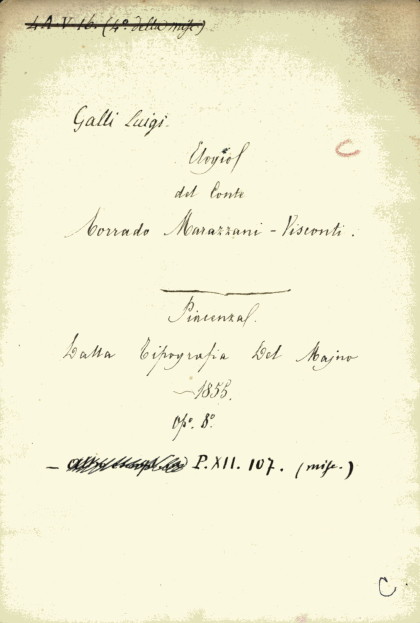 4.A.V.16. (4º della misc.)
Galli Luigi.
C
Elogio
del Conte
Corrado Marazzani-Visconti.
Piacenza.
Dalla Tipografia Del Majno
1855.
op. 8º
P.XII.107. (misc.)
C